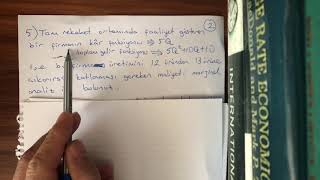 5) Tam rekabet ortamında faaliyet gösteren
bir firmanın kâr fonksiyonu ⇒ 5Q
toplam gelir fonksiyonu ⇒ 5Q²+10Q+10
ise bu firma üretimini 12 birimden 13 birime
çıkarırsa katlanması gereken maliyeti marjinal
analiz ile bulunuz.
2
RATE ECONOMIC
INTERNATIONAL